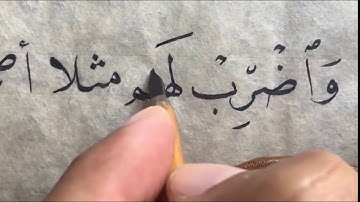 وَٱضۡرِبۡ لَهُم مثلا أص